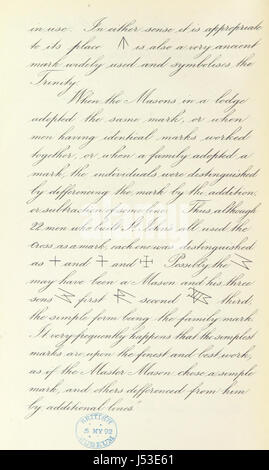 in use. In either sense it is appropriate
to its place ↑ is also a very ancient
mark widely used and symbolises the
Trinity.
When the Masons in a lodge
adopted the same mark, or when
men having identical marks worked
together, or when a family adopted a
mark, the individuals were distinguished
by differencing the mark by the addition
or subtraction of some lines. Thus although
22 men who built St. all used the
Cross as a mark, each one was distinguished
as + and + and + Possibly the
may have been a Mason and his three
sons first second third
the simple form being the family mark
It very frequently happens that the simplest
marks are upon the finest and best work,
as if the Master Mason chose a simple
mark, and others differenced from him
by additional lines."
BRITISH
5 MY 92
MUSEUM
alamy stock photo
J53E61
www.alamy.com